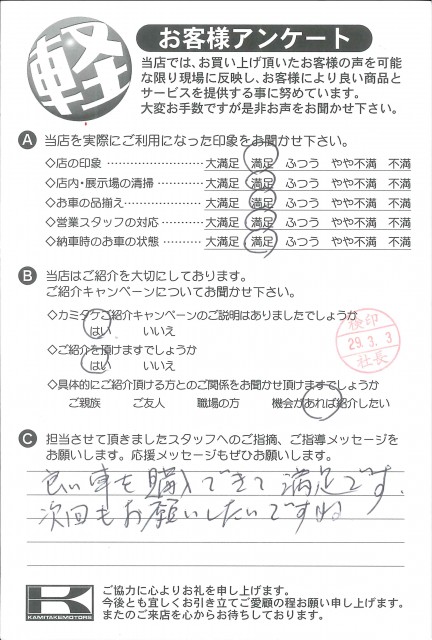 軽
お客様アンケート
当店では、お買い上げ頂いたお客様の声を可能
な限り現場に反映し、お客様により良い商品と
サービスを提供する事に努めています。
大変お手数ですが是非お声をお聞かせ下さい。
A 当店を実際にご利用になった印象をお聞かせ下さい。
◇店の印象 ………………… 大満足 満足 ふつう やや不満 不満
◇店内・展示場の清掃 ………… 大満足 満足 ふつう やや不満 不満
◇お車の品揃え ……………… 大満足 満足 ふつう やや不満 不満
◇営業スタッフの対応 ………… 大満足 満足 ふつう やや不満 不満
◇納車時のお車の状態 ………… 大満足 満足 ふつう やや不満 不満
B 当店はご紹介を大切にしてあります。
ご紹介キャンペーンについてお聞かせ下さい。
◇カミタケご紹介キャンペーンのご説明はありましたでしょうか
はい いいえ
◇ご紹介を頂けますでしょうか
はい いいえ
◇具体的にご紹介頂ける方とのご関係をお聞かせ頂けますでしょうか
ご親族 ご友人 職場の方 機会があれば紹介したい
検印
29.3.3
社長
C 担当させて頂きましたスタッフへのご指摘、ご指導メッセージを
お願いします。応援メッセージもぜひお願いします。
良い車を購入できて満足です.
次回もお願いしたいですね
K
KAMITAKEMOTORS
ご協力に心よりお礼を申し上げます。
今後とも宜しくお引き立てご愛顧の程お願い申し上げます。
またのご来店を心からお待ちしております。